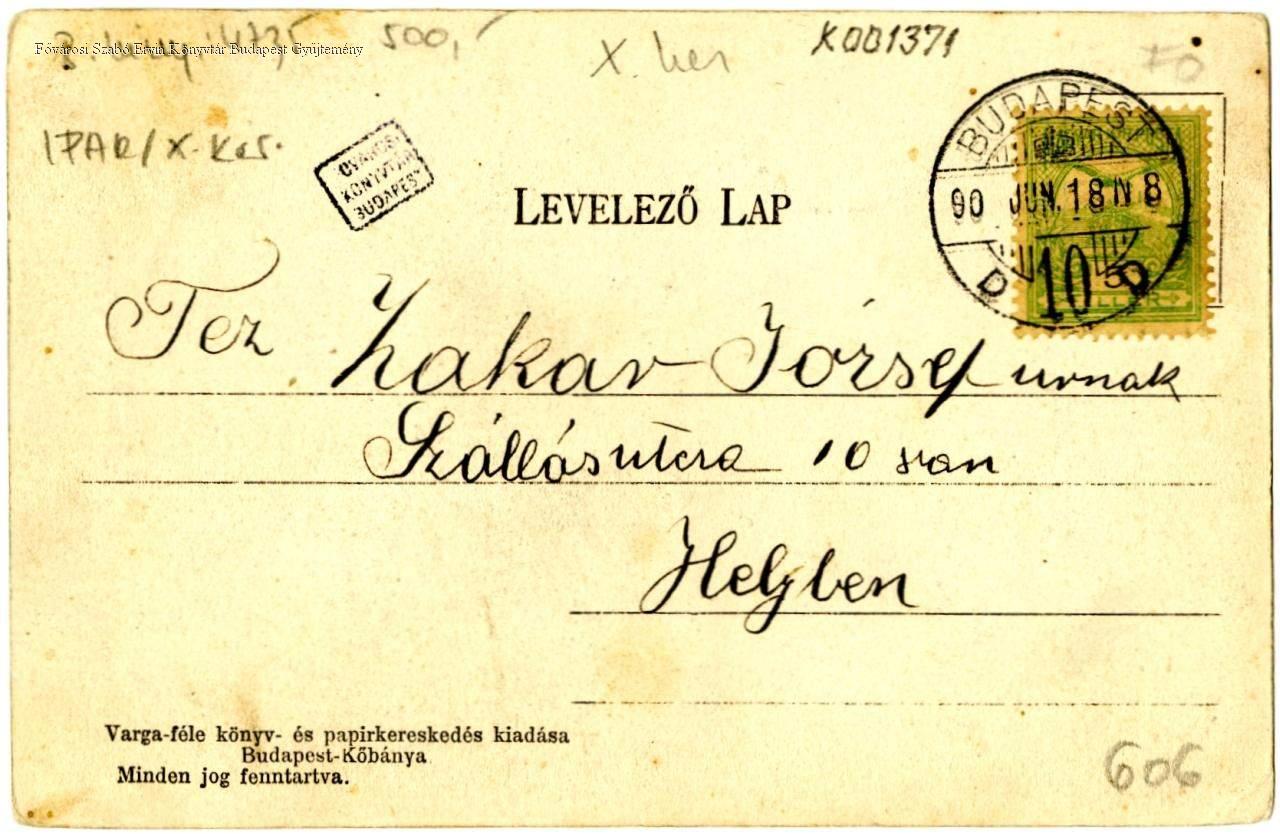 Fővárosi Szabó Ervin Könyvtár Budapest Gyűjtemény
500,-
X. ker
K001371
IPAR/X. Ker.
FŐVÁROSI
KÖNYVTÁR
BUDAPEST
LEVELEZŐ LAP
BUDAPEST
90 JUN. 18 N 8
D 10 D
5
FILLER
Tez Zakar József urnak
Szállásutcza 10 szan
Helyben
Varga-féle könyv- és papirkereskedés kiadása
Budapest-Kőbánya
Minden jog fenntartva.
606